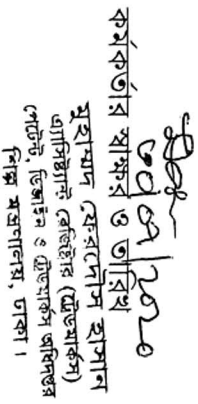 কর্মকর্তার স্বাক্ষর ও তারিখ
মুহাম্মদ ফেরদৌস হাসান
এ্যাসিষ্ট্যান্ট রেজিষ্ট্রার (ট্রেডমার্কস)
পেটেন্ট, ডিজাইন ও ট্রেডমার্কস অধিদপ্তর
শিল্প মন্ত্রণালয়, ঢাকা।